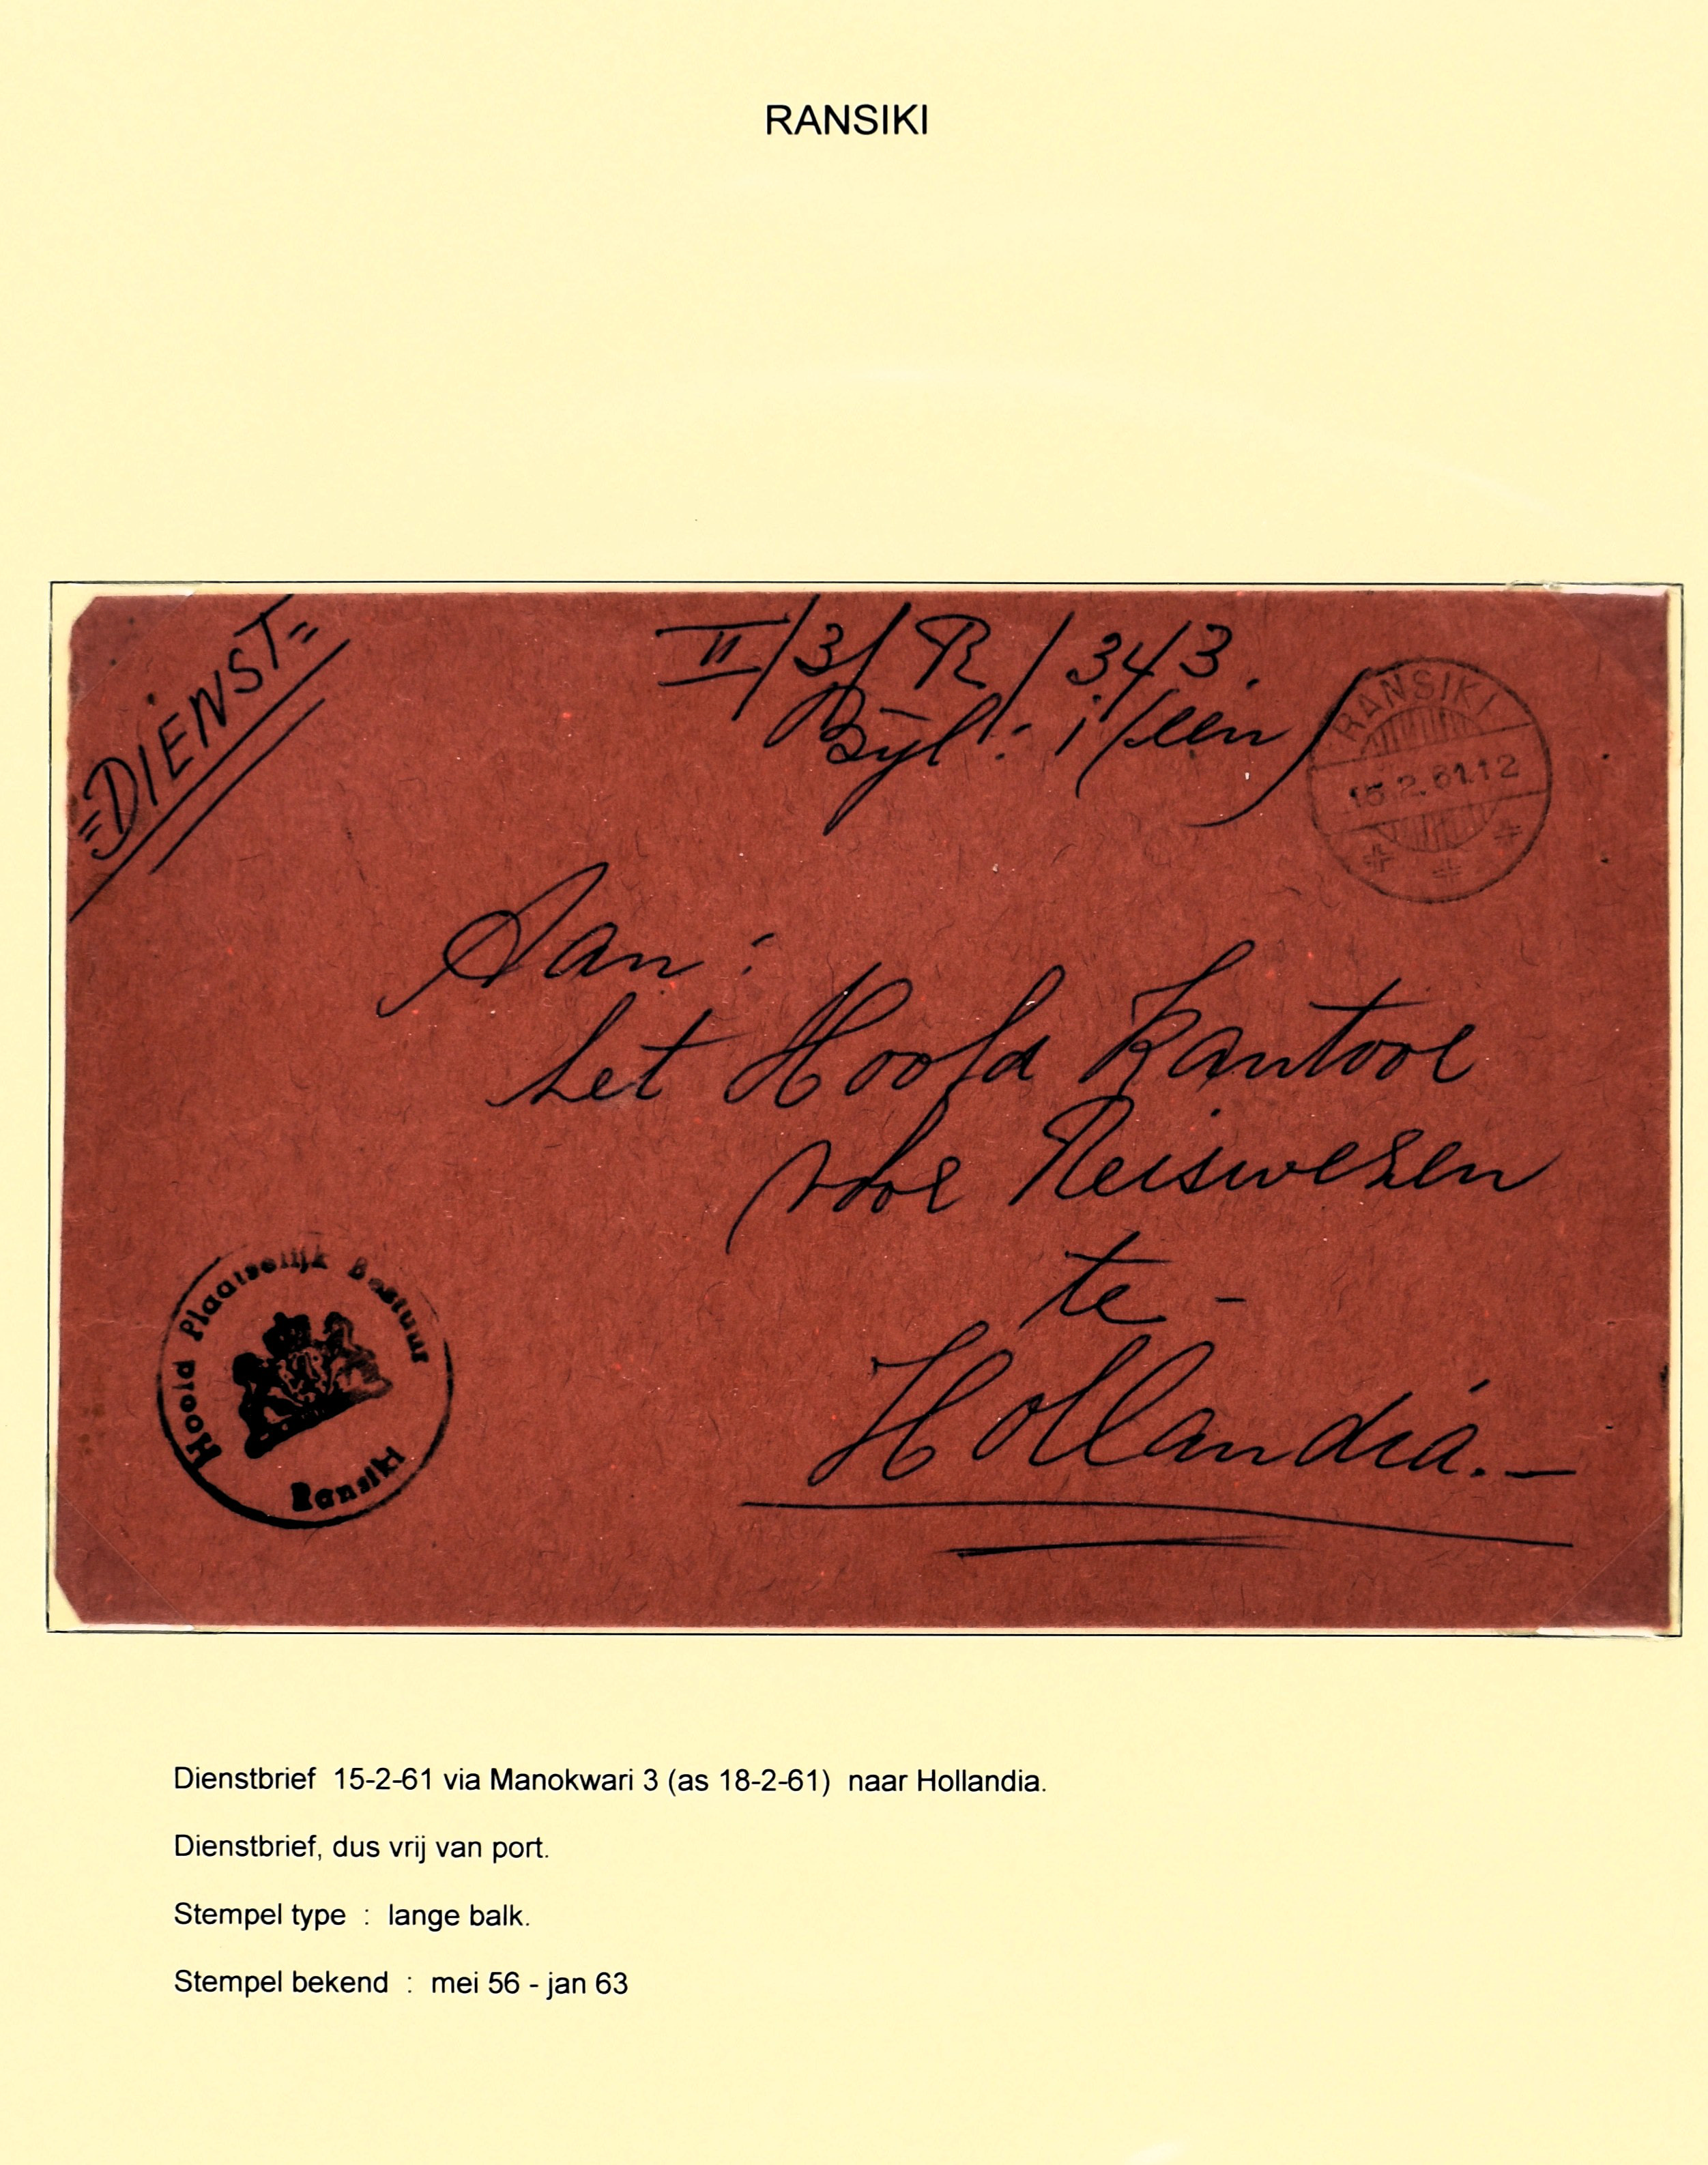 RANSIKI
=DIENST=
II/3/R/343.
Bijl: 1/een/
RANSIKI
15.2.61.12
Aan:
het Hoofd Kantoor
voor Reiswezen
te -
Hollandia.-
Hoofd Plaatselijk Bestuur
Ransiki
Dienstbrief 15-2-61 via Manokwari 3 (as 18-2-61) naar Hollandia.
Dienstbrief, dus vrij van port.
Stempel type : lange balk.
Stempel bekend : mei 56 - jan 63